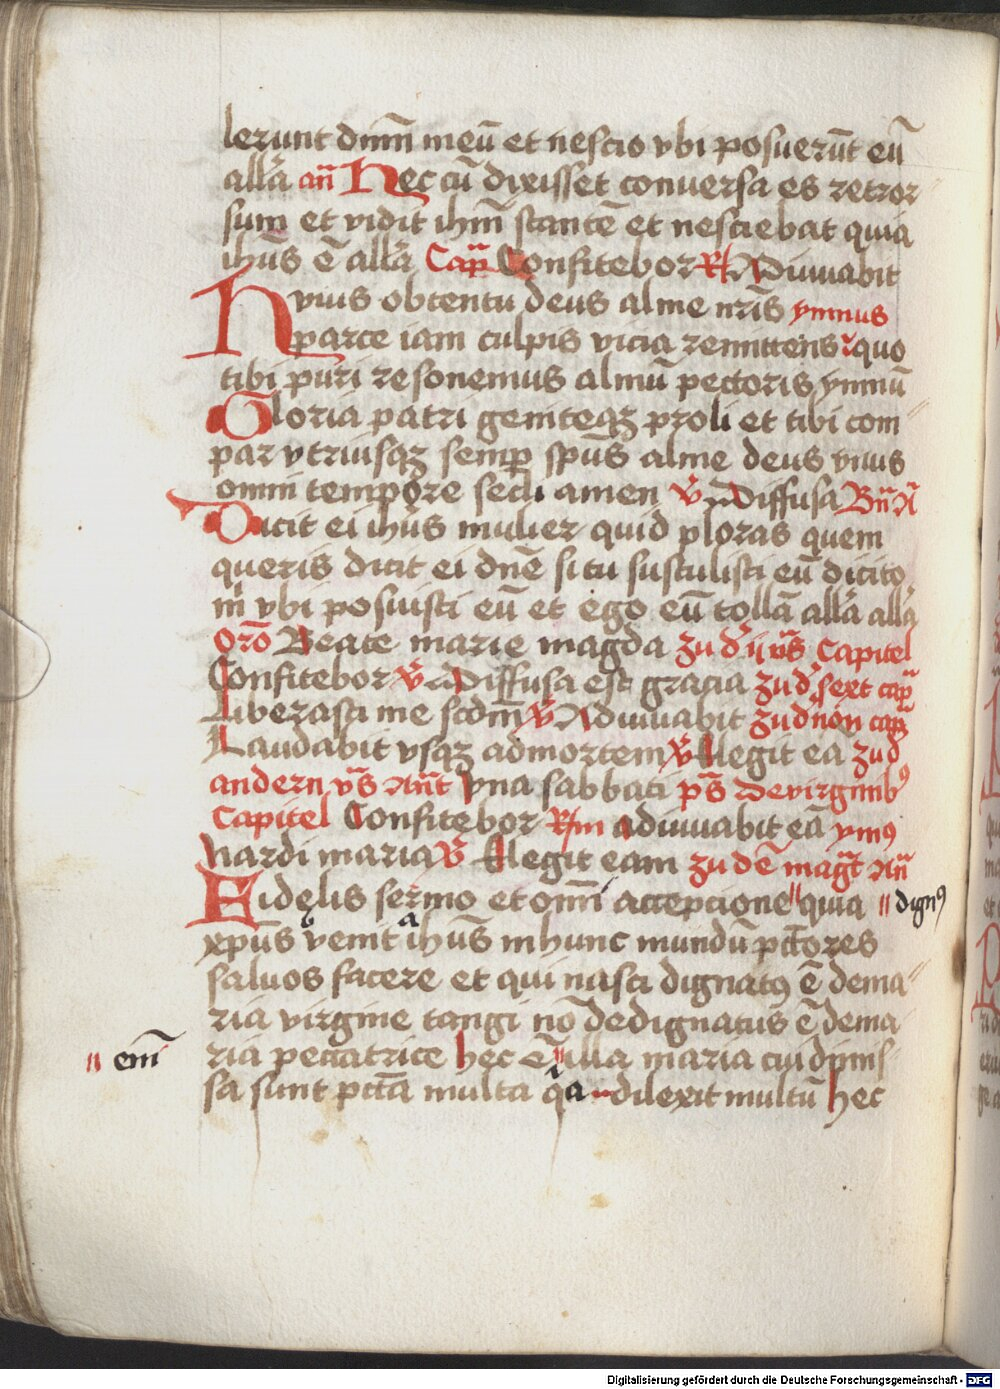 lerunt dnm̄ meū et nescio vbi posuerūt eū
allā an̄ Hec cū dixisset conuersa es retror
sum et vidit ihm̄ stantē et nesciebat quia
ihūs ē allā Cap̄ Confitebor R Adiuuabit
Huius obtentu deus alme nr̄is ymnus
parce iam culpis vicia remittens quo
tibi puri resonemus almū pectoris ymnū
Gloria patri geniteqꝫ proli et tibi com
par vtriusqꝫ semꝑ sp̄us alme deus vnus
omni tempore secli amen v̄ Diffusa Bn̄ An̄
Dicit ei ihūs mulier quid ploras quem
queris dicit ei dnē si tu sustulisti eū dicito
m̄ vbi posuisti eū et ego eū tollā allā allā
Orō Beate marie magda zu d' ij vs̄ Capitel
Confitebor v̄ Diffusa est gracia zu d' sext cap̄
Liberasti me scdm̄ v̄ Adiuuabit zu d non cap̄
Laudabit vsqꝫ ad mortem v̄ Elegit eā zu d'
andern vs̄ Ant̄ Vna sabbati ps̄ De virginibꝰ
Capitel Confitebor R̄m adiuuabit eā ymꝰ
Nardi maria v̄ Elegit eam zu dē magt̄ An̄
Fidelis sermo et omī accepcione quia dignꝰ
b xp̄us venit a ihūs in hunc mundū pctōres
saluos facere et qui nasci dignatꝰ ē de ma
ria virgine tangi nō dedignatus ē de ma
enī ria peccatrice hec ē illa maria cui dimis
sa sunt pctā multa qa dilexit multū hec
Digitalisierung gefördert durch die Deutsche Forschungsgemeinschaft - DFG